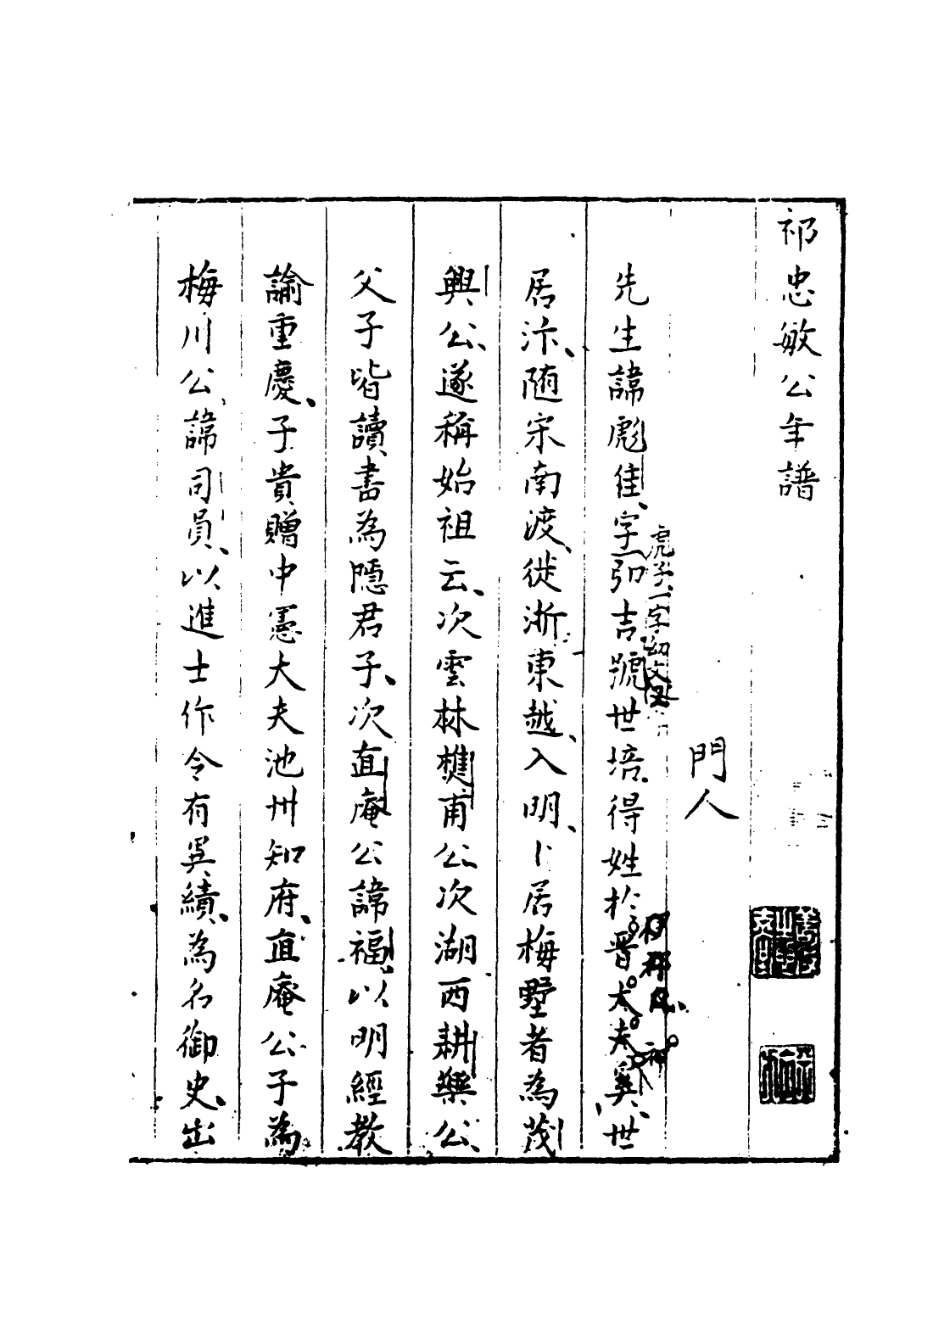 祁忠敏公年譜
門人
先生諱彪佳字弘吉號世培得姓於晋大夫奚世
虎子一字幼文又
居汴随宋南渡徙浙東越入明卜居梅墅者為茂
興公遂稱始祖云次雲林樵甫公次湖西耕樂公
父子皆讀書為隱君子次直庵公諱福以明經教
諭重慶子貴贈中憲大夫池州知府直庵公子為
梅川公諱司員以進士作令有異績為名御史出